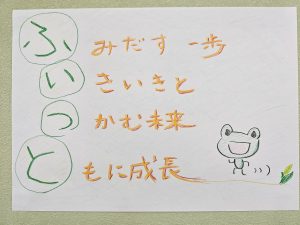 ふみだす一歩
いきいきと
つかむ未来
ともに成長